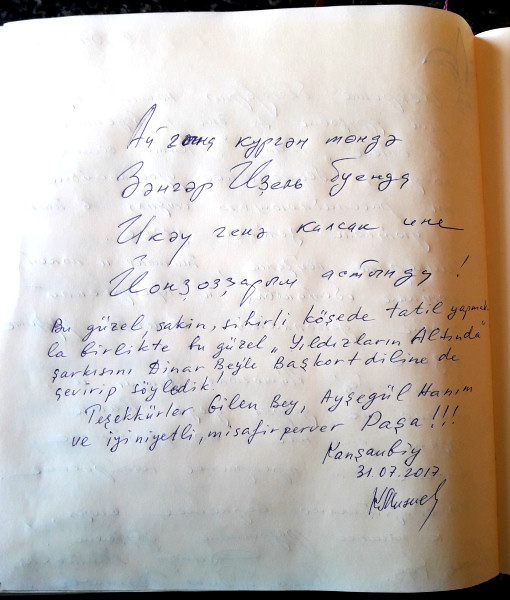 Ай гына күргән төндә
Зәңгәр Иҙель буенда
Икәү генә калсак ине
Йонҙоҙҙарым астында!
Bu güzel, sakin, sihirli köşede tatil yapmak-
la birlikte bu güzel „Yıldızların Altında"
şarkısını Dinar Bey'le Başkort diline de
çevirip söyledik.
Teşekkürler, Gilen Bey, Ayşegül Hanım
ve iyi niyetli, misafirperver Paşa!!!
Kanşaubiy
31.07.2017